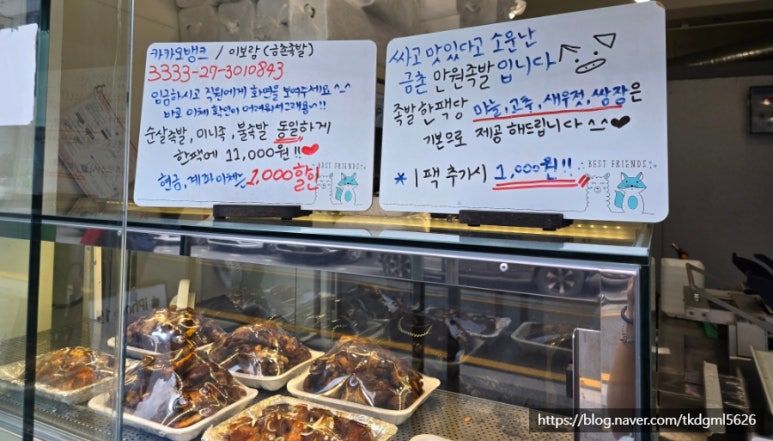 카카오뱅크 / 이보람 (금촌족발)
3333-27-3010843
입금하시고 직원에게 화면을 보여주세요 ^-^
바로 이체 확인이 어려워서그래용~!!
순살족발, 미니족, 불족발 동일하게
한팩에 11,000원!!
현금, 계좌이체는 1,000할인
BEST FRIENDS
싸고 맛있다고 소문난
금촌 만원족발입니다
족발 한팩당 마늘, 고추, 새우젓, 쌈장은
기본으로 제공 해드립니다 ^-^
* 1팩 추가시 1,000원!!
BEST FRIENDS
https://blog.naver.com/tkdgml5626